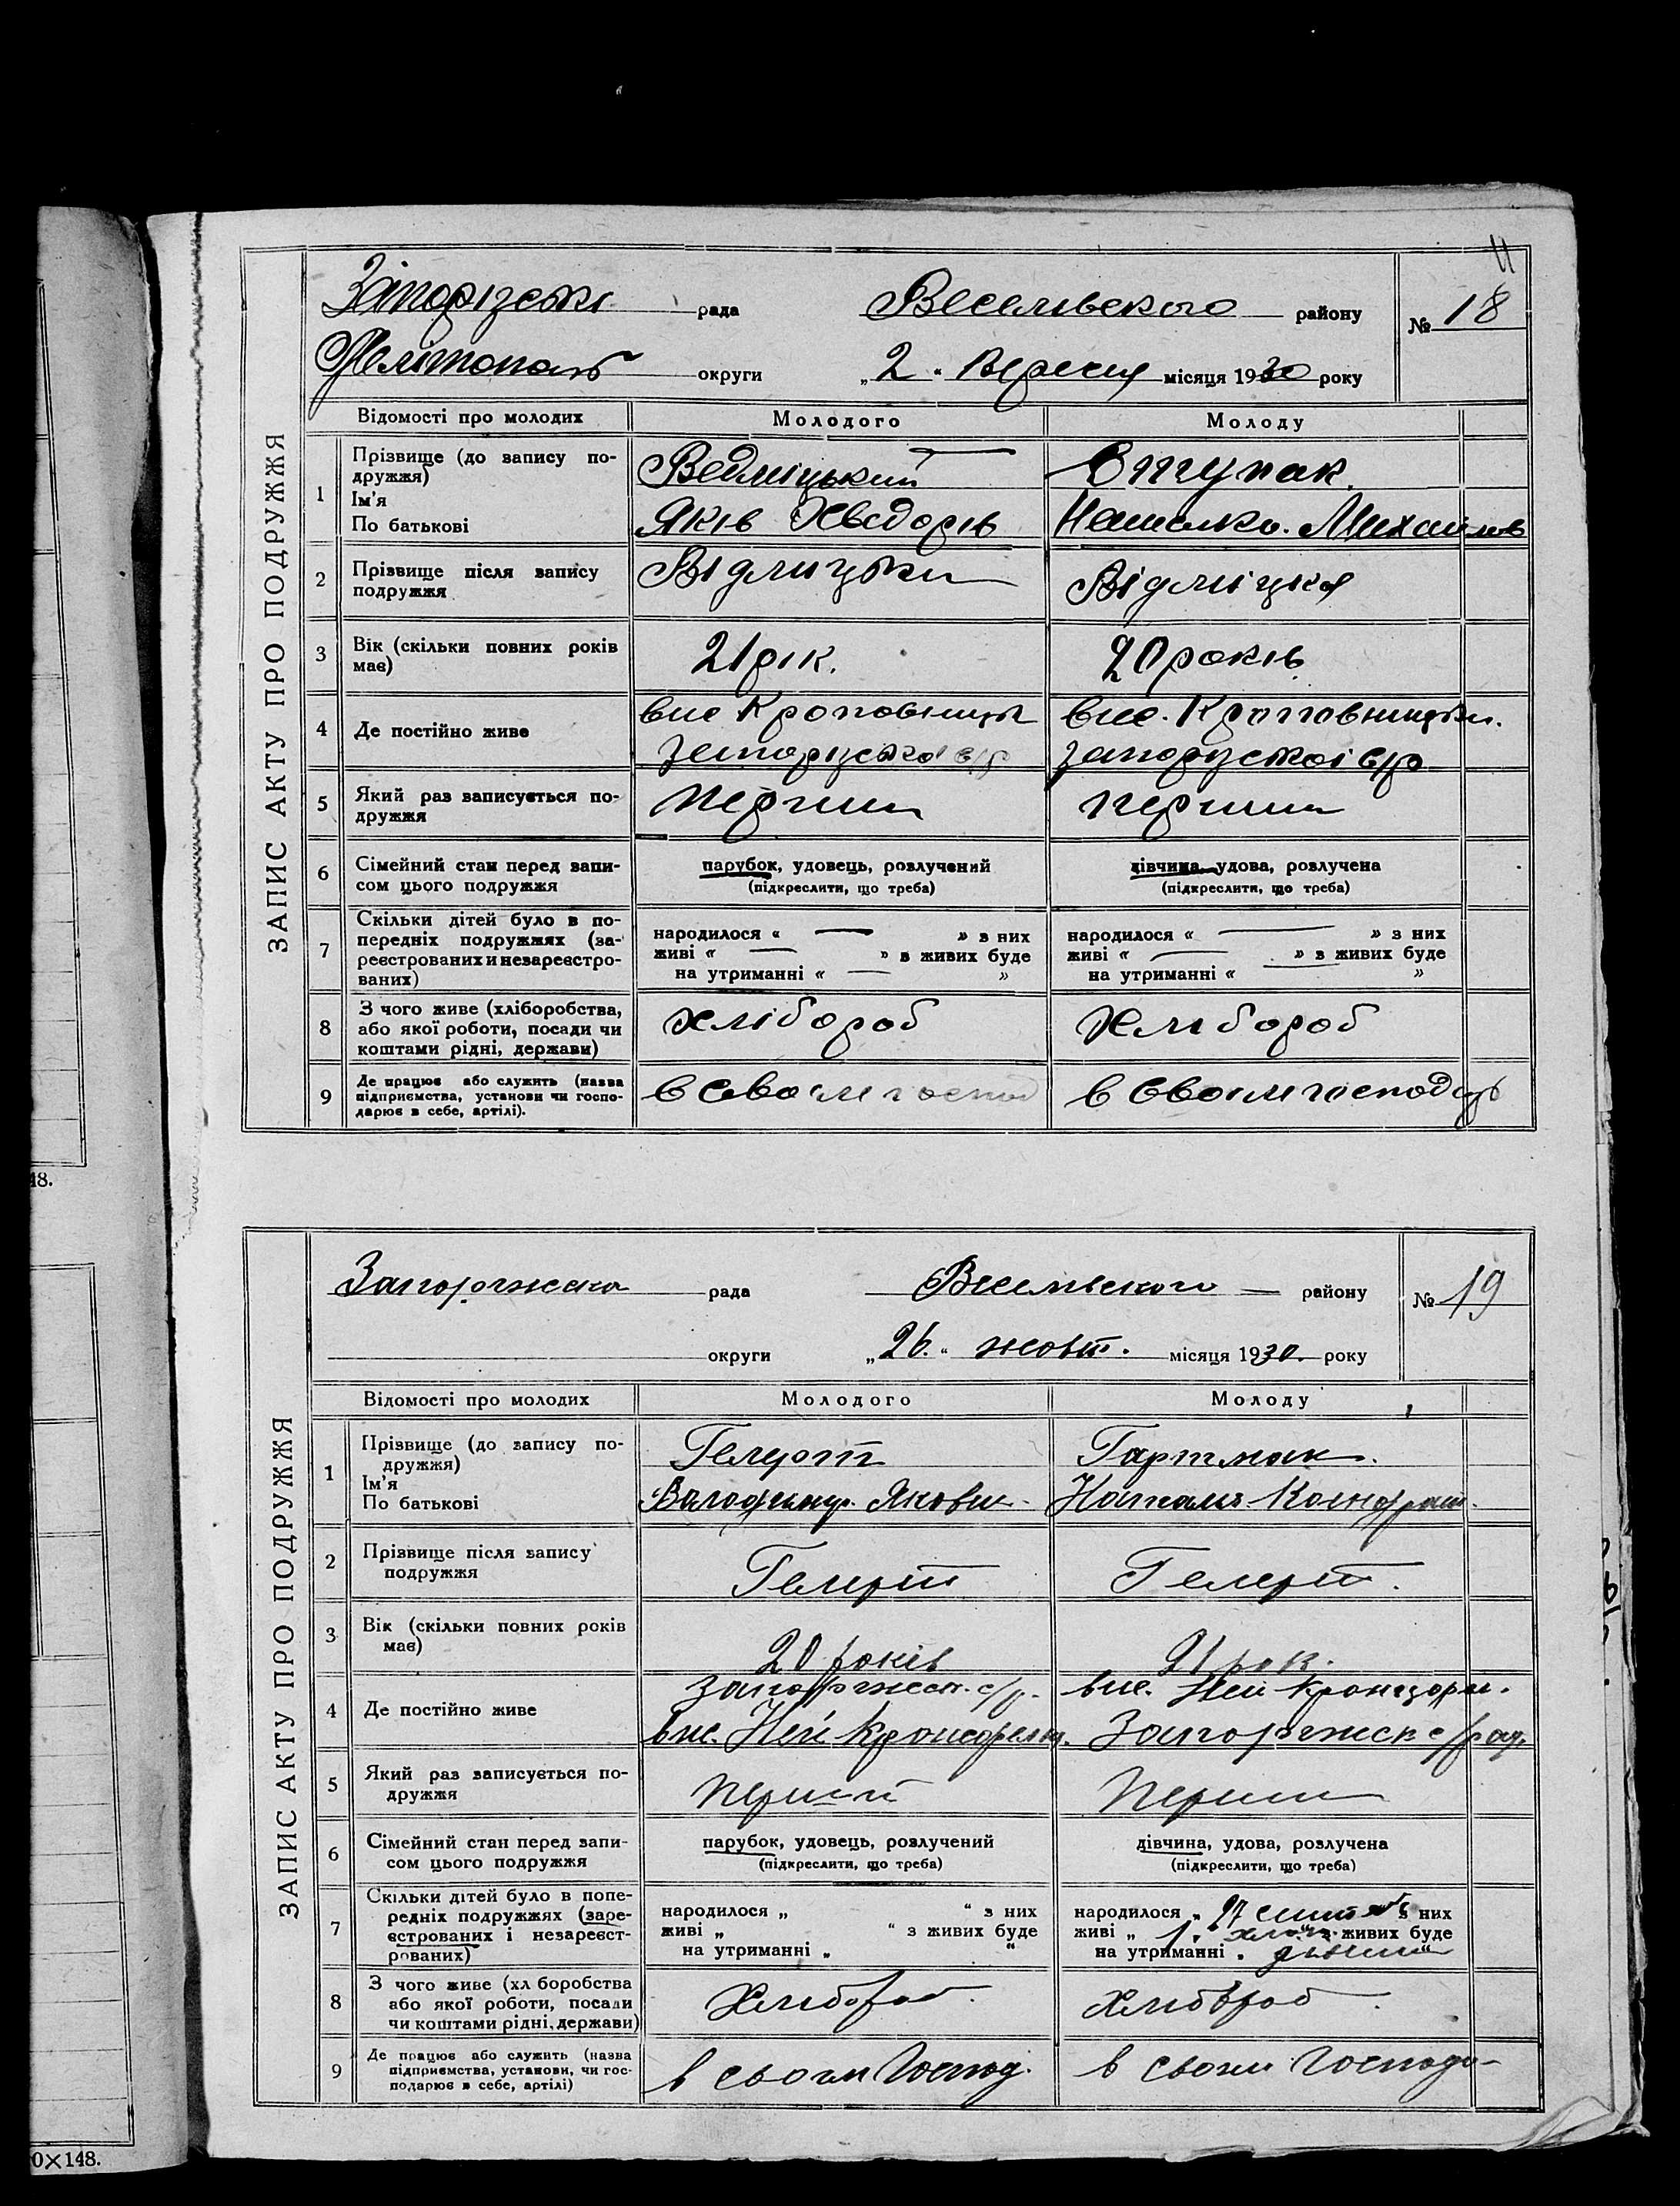 11
ЗАПИС АКТУ ПРО ПОДРУЖЖЯ
Запорізські рада Веселівского району № 18
Мелітополь округи „2“ Вересня місяця 1930 року
Відомості про молодих Молодого Молоду
1 Прізвище (до запису по-
дружжя)
Ім'я
По батькові
Ведміцький
Яків Хведорів
Наталка. Михайлов
2 Прізвище після запису
подружжя
Відмицьки
Відміцка
3 Вік (скільки повних років
має)
21 рік.
20 років
4 Де постійно живе
вис Кроповницьк
с/р
вис. Кроповницьки.
запорізскої с/р
5 Який раз записується по-
дружжя
перший
перший
6 Сімейний стан перед запи-
сом цього подружжя
парубок, удовець, розлучений
(підкреслити, що треба)
дівчина, удова, розлучена
(підкреслити, що треба)
7 Скільки дітей було в по-
передніх подружжях (за-
реєстрованих и незареєстро-
ваних)
народилося « — » з них
живі « — » в живих буде
на утриманні « — »
народилося « — » з них
живі « — » в живих буде
на утриманні « — »
8 З чого живе (хліборобства,
або якої роботи, посади чи
коштами рідні, держави)
хлібороб
хлібороб
9 Де працює або служить (назва
підприємства, установи чи госпо-
дарює в себе, артілі).
в своїм господ
в своїм господ
ЗАПИС АКТУ ПРО ПОДРУЖЖЯ
Запоріжска рада Веселівского району № 19
округи „26.“ жовт. місяця 1930. року
Відомості про молодих Молодого Молоду
1 Прізвище (до запису по-
дружжя)
Ім'я
По батькові
Гелерт
Володимир. Якович.
Гартман.
Наталя Кондрат.
2 Прізвище після запису
подружжя
Гелерт
Гелерт.
3 Вік (скільки повних років
має)
20 років
21 рок.
4 Де постійно живе
Запоріжск. с/р.
вис. Ней
вис. Ней
Запоріжск с/рад.
5 Який раз записується по-
дружжя
Перший
Перший
6 Сімейний стан перед запи-
сом цього подружжя
парубок, удовець, розлучений
(підкреслити, що треба)
дівчина, удова, розлучена
(підкреслити, що треба)
7 Скільки дітей було в попе-
редніх подружжях (заре-
єстрованих і незареєст-
рованих)
народилося „ “ з них
живі „ “ з живих буде
на утриманні „ “
народилося „ 27 з них
живі „ 1 з живих буде
на утриманні „
8 З чого живе (хл боробства
або якої роботи, посади
чи коштами рідні, держави)
Хлібороб.
Хлібороб.
9 Де працює або служить (назва
підприємства, установи, чи гос-
подарює в себе, артілі)
в своїм Господ.
в своїм Господа-
48.
0×148.